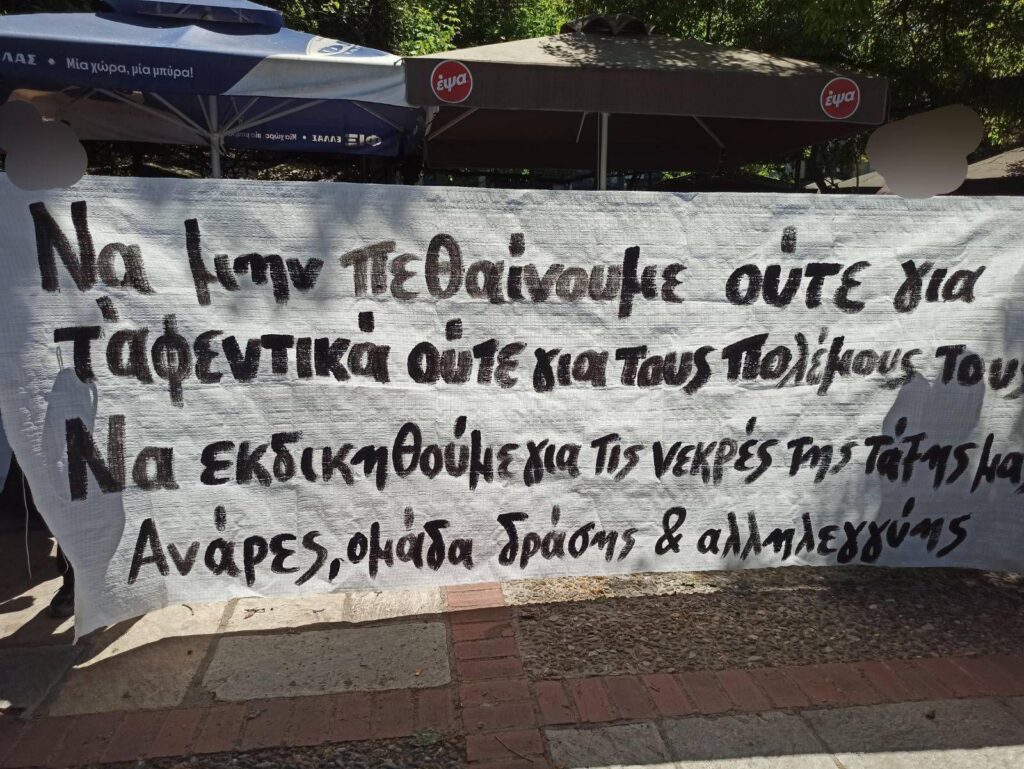 ΛΑΣ • Μία χώρα, μία μπύρα!
έψα
έψα
ΦΙΞ ΕΛΛΑΣ • Μία χώρα
Να μην πεθαίνουμε ούτε για
τ'αφεντικά ούτε για τους πολέμους τους
Να εκδικηθούμε για τις νεκρές της τάξης μας
Ανάρες, ομάδα δράσης & αλληλεγγύης